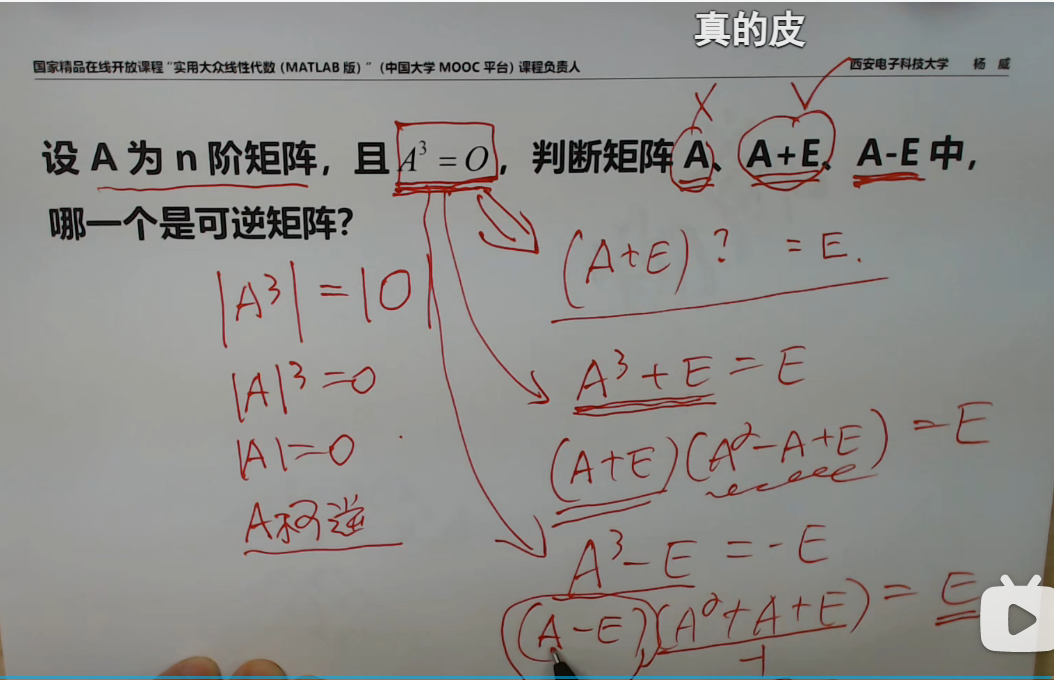 真的皮
国家精品在线开放课程“实用大众线性代数（MATLAB 版）”（中国大学 MOOC 平台）课程负责人 西安电子科技大学 杨 威
设 A 为 n 阶矩阵，且 A³ = O，判断矩阵 A、A+E、A-E 中，
哪一个是可逆矩阵？
(A+E) ? = E.
|A³| = |O|
A³ + E = E
|A|³ = 0
(A+E)(A²-A+E) = E
|A| = 0
A不可逆
A³ - E = -E
(A-E)(A²+A+E) = E
-1